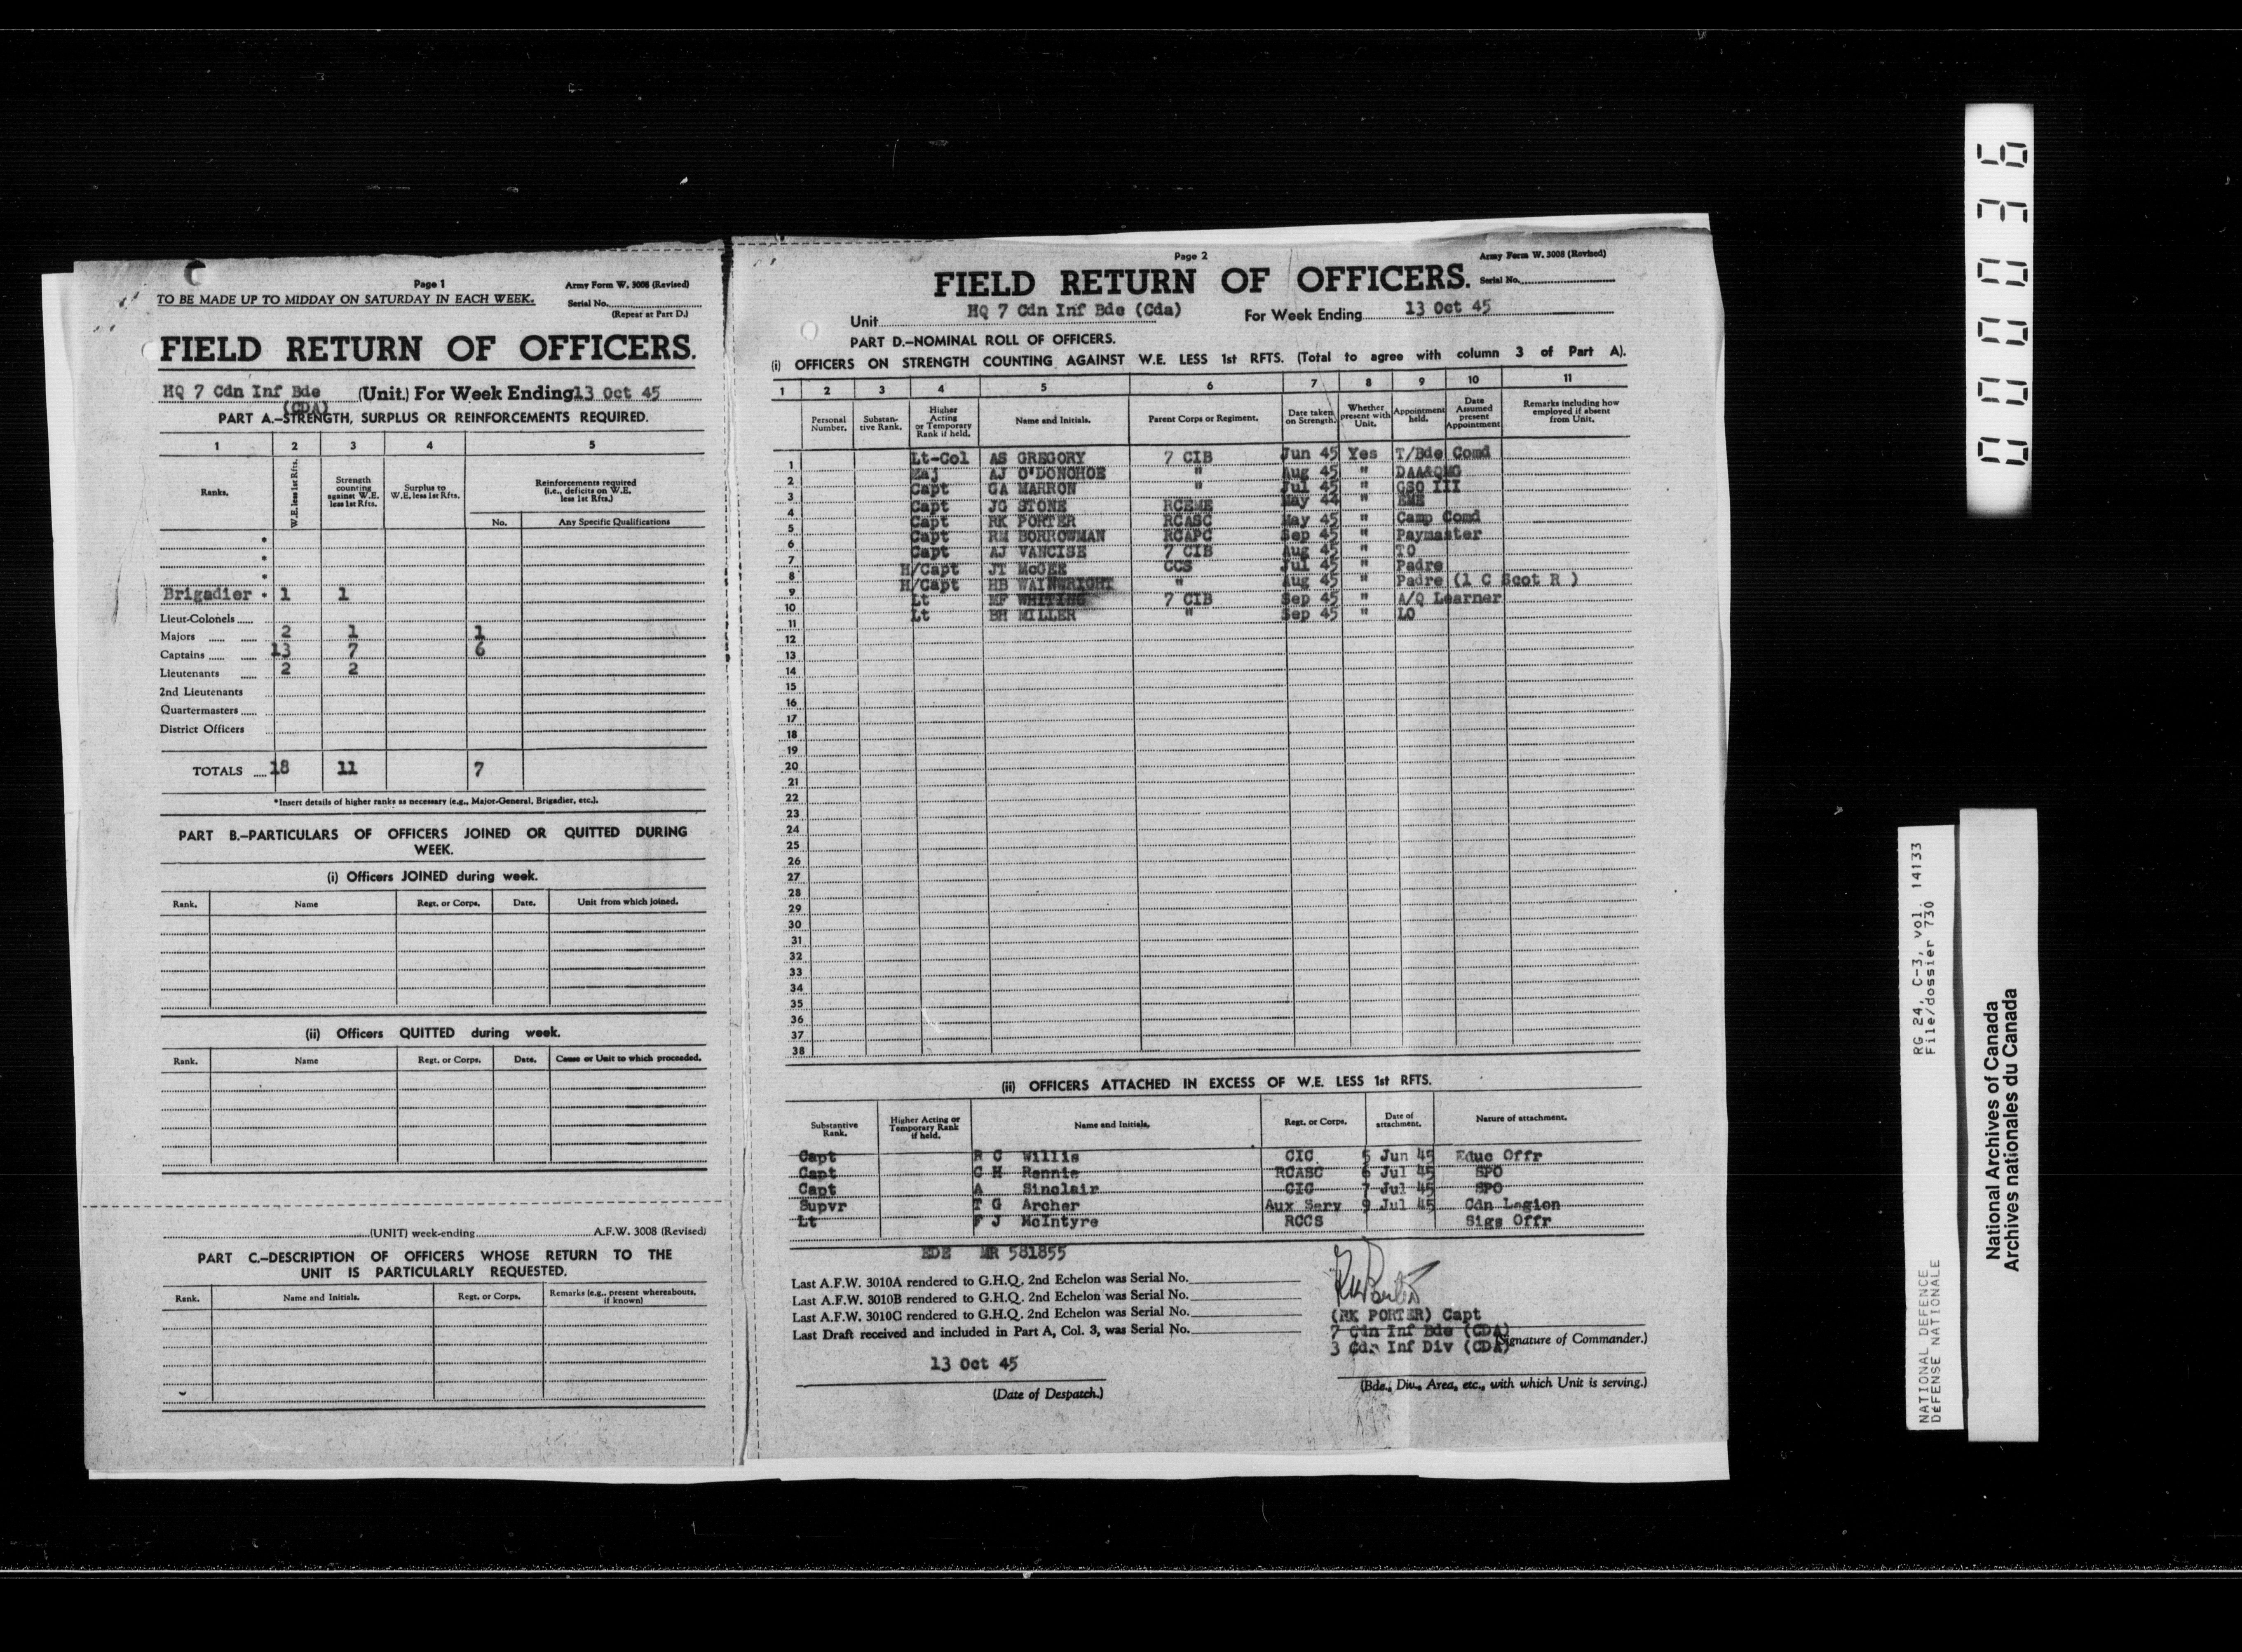 Page 1
Army Form W. 3008 (Revised)
TO BE MADE UP TO MIDDAY ON SATURDAY IN EACH WEEK.
Serial No.
(Repeat at Part D.)
FIELD RETURN OF OFFICERS.
HQ 7 Cdn Inf Bde (Unit.) For Week Ending 13 Oct 45
(CDA)
PART A.—STRENGTH, SURPLUS OR REINFORCEMENTS REQUIRED.
1 2 3 4 5
Ranks. W.E. less 1st Rfts. Strength counting against W.E. less 1st Rfts. Surplus to W.E. less 1st Rfts. Reinforcements required (i.e., deficits on W.E. less 1st Rfts.)
No. Any Specific Qualifications
*
*
*
Brigadier * 1 1
Lieut-Colonels
Majors 2 1 1
Captains 13 7 6
Lieutenants 2 2
2nd Lieutenants
Quartermasters
District Officers
TOTALS 18 11 7
*Insert details of higher ranks as necessary (e.g., Major-General, Brigadier, etc.).
PART B.—PARTICULARS OF OFFICERS JOINED OR QUITTED DURING
WEEK.
(i) Officers JOINED during week.
Rank. Name Regt. or Corps. Date. Unit from which joined.
(ii) Officers QUITTED during week.
Rank. Name Regt. or Corps. Date. Cause or Unit to which proceeded.
(UNIT) week-ending A.F.W. 3008 (Revised)
PART C.—DESCRIPTION OF OFFICERS WHOSE RETURN TO THE
UNIT IS PARTICULARLY REQUESTED.
Rank. Name and Initials. Regt. or Corps. Remarks (e.g., present whereabouts, if known)
Page 2
Army Form W. 3008 (Revised)
FIELD RETURN OF OFFICERS.
Serial No.
Unit HQ 7 Cdn Inf Bde (Cda) For Week Ending 13 Oct 45
PART D.—NOMINAL ROLL OF OFFICERS.
(i) OFFICERS ON STRENGTH COUNTING AGAINST W.E. LESS 1st RFTS. (Total to agree with column 3 of Part A).
1 2 3 4 5 6 7 8 9 10 11
Personal Number. Substantive Rank. Higher Acting or Temporary Rank if held. Name and Initials. Parent Corps or Regiment. Date taken on Strength. Whether present with Unit. Appointment held. Date Assumed present Appointment Remarks including how employed if absent from Unit.
1 Lt-Col AS GREGORY 7 CIB Jun 45 Yes T/Bde Comd
2 Maj AJ O'DONOHOE " Aug 45 " DAA&QMG
3 Capt GA MARRON " Jul 45 " GSO III
4 Capt JG STONE RCEME May 44 " EME
5 Capt RK PORTER RCASC May 45 " Camp Comd
6 Capt RM BORROWMAN RCAPC Sep 45 " Paymaster
7 Capt AJ VANCISE 7 CIB Aug 45 " TO
8 H/Capt JT McGEE CCS Jul 45 " Padre
9 H/Capt HB WAINWRIGHT " Aug 45 " Padre (1 C Scot R )
10 Lt MF WHITING 7 CIB Sep 45 " A/Q Learner
11 Lt BH MILLER " Sep 45 " LO
12
13
14
15
16
17
18
19
20
21
22
23
24
25
26
27
28
29
30
31
32
33
34
35
36
37
38
(ii) OFFICERS ATTACHED IN EXCESS OF W.E. LESS 1st RFTS.
Substantive Rank. Higher Acting or Temporary Rank if held. Name and Initials. Regt. or Corps. Date of attachment. Nature of attachment.
Capt R C Willis CIC 5 Jun 45 Educ Offr
Capt C H Rennie RCASC 6 Jul 45 SPO
Capt A Sinclair CIC 7 Jul 45 SPO
Supvr T G Archer Aux Serv 9 Jul 45 Cdn Legion
Lt F J McIntyre RCCS Sigs Offr
EDE MR 581855
Last A.F.W. 3010A rendered to G.H.Q. 2nd Echelon was Serial No.
Last A.F.W. 3010B rendered to G.H.Q. 2nd Echelon was Serial No.
Last A.F.W. 3010C rendered to G.H.Q. 2nd Echelon was Serial No.
Last Draft received and included in Part A, Col. 3, was Serial No.
RK Porter
(RK PORTER) Capt
7 Cdn Inf Bde (CDA)
(Signature of Commander.)
3 Cdn Inf Div (CDA)
13 Oct 45
(Date of Despatch.)
(Bde., Div., Area, etc., with which Unit is serving.)
000036
RG 24, C-3, vol. 14133
File/dossier 730
NATIONAL DEFENCE
DÉFENSE NATIONALE
National Archives of Canada
Archives nationales du Canada